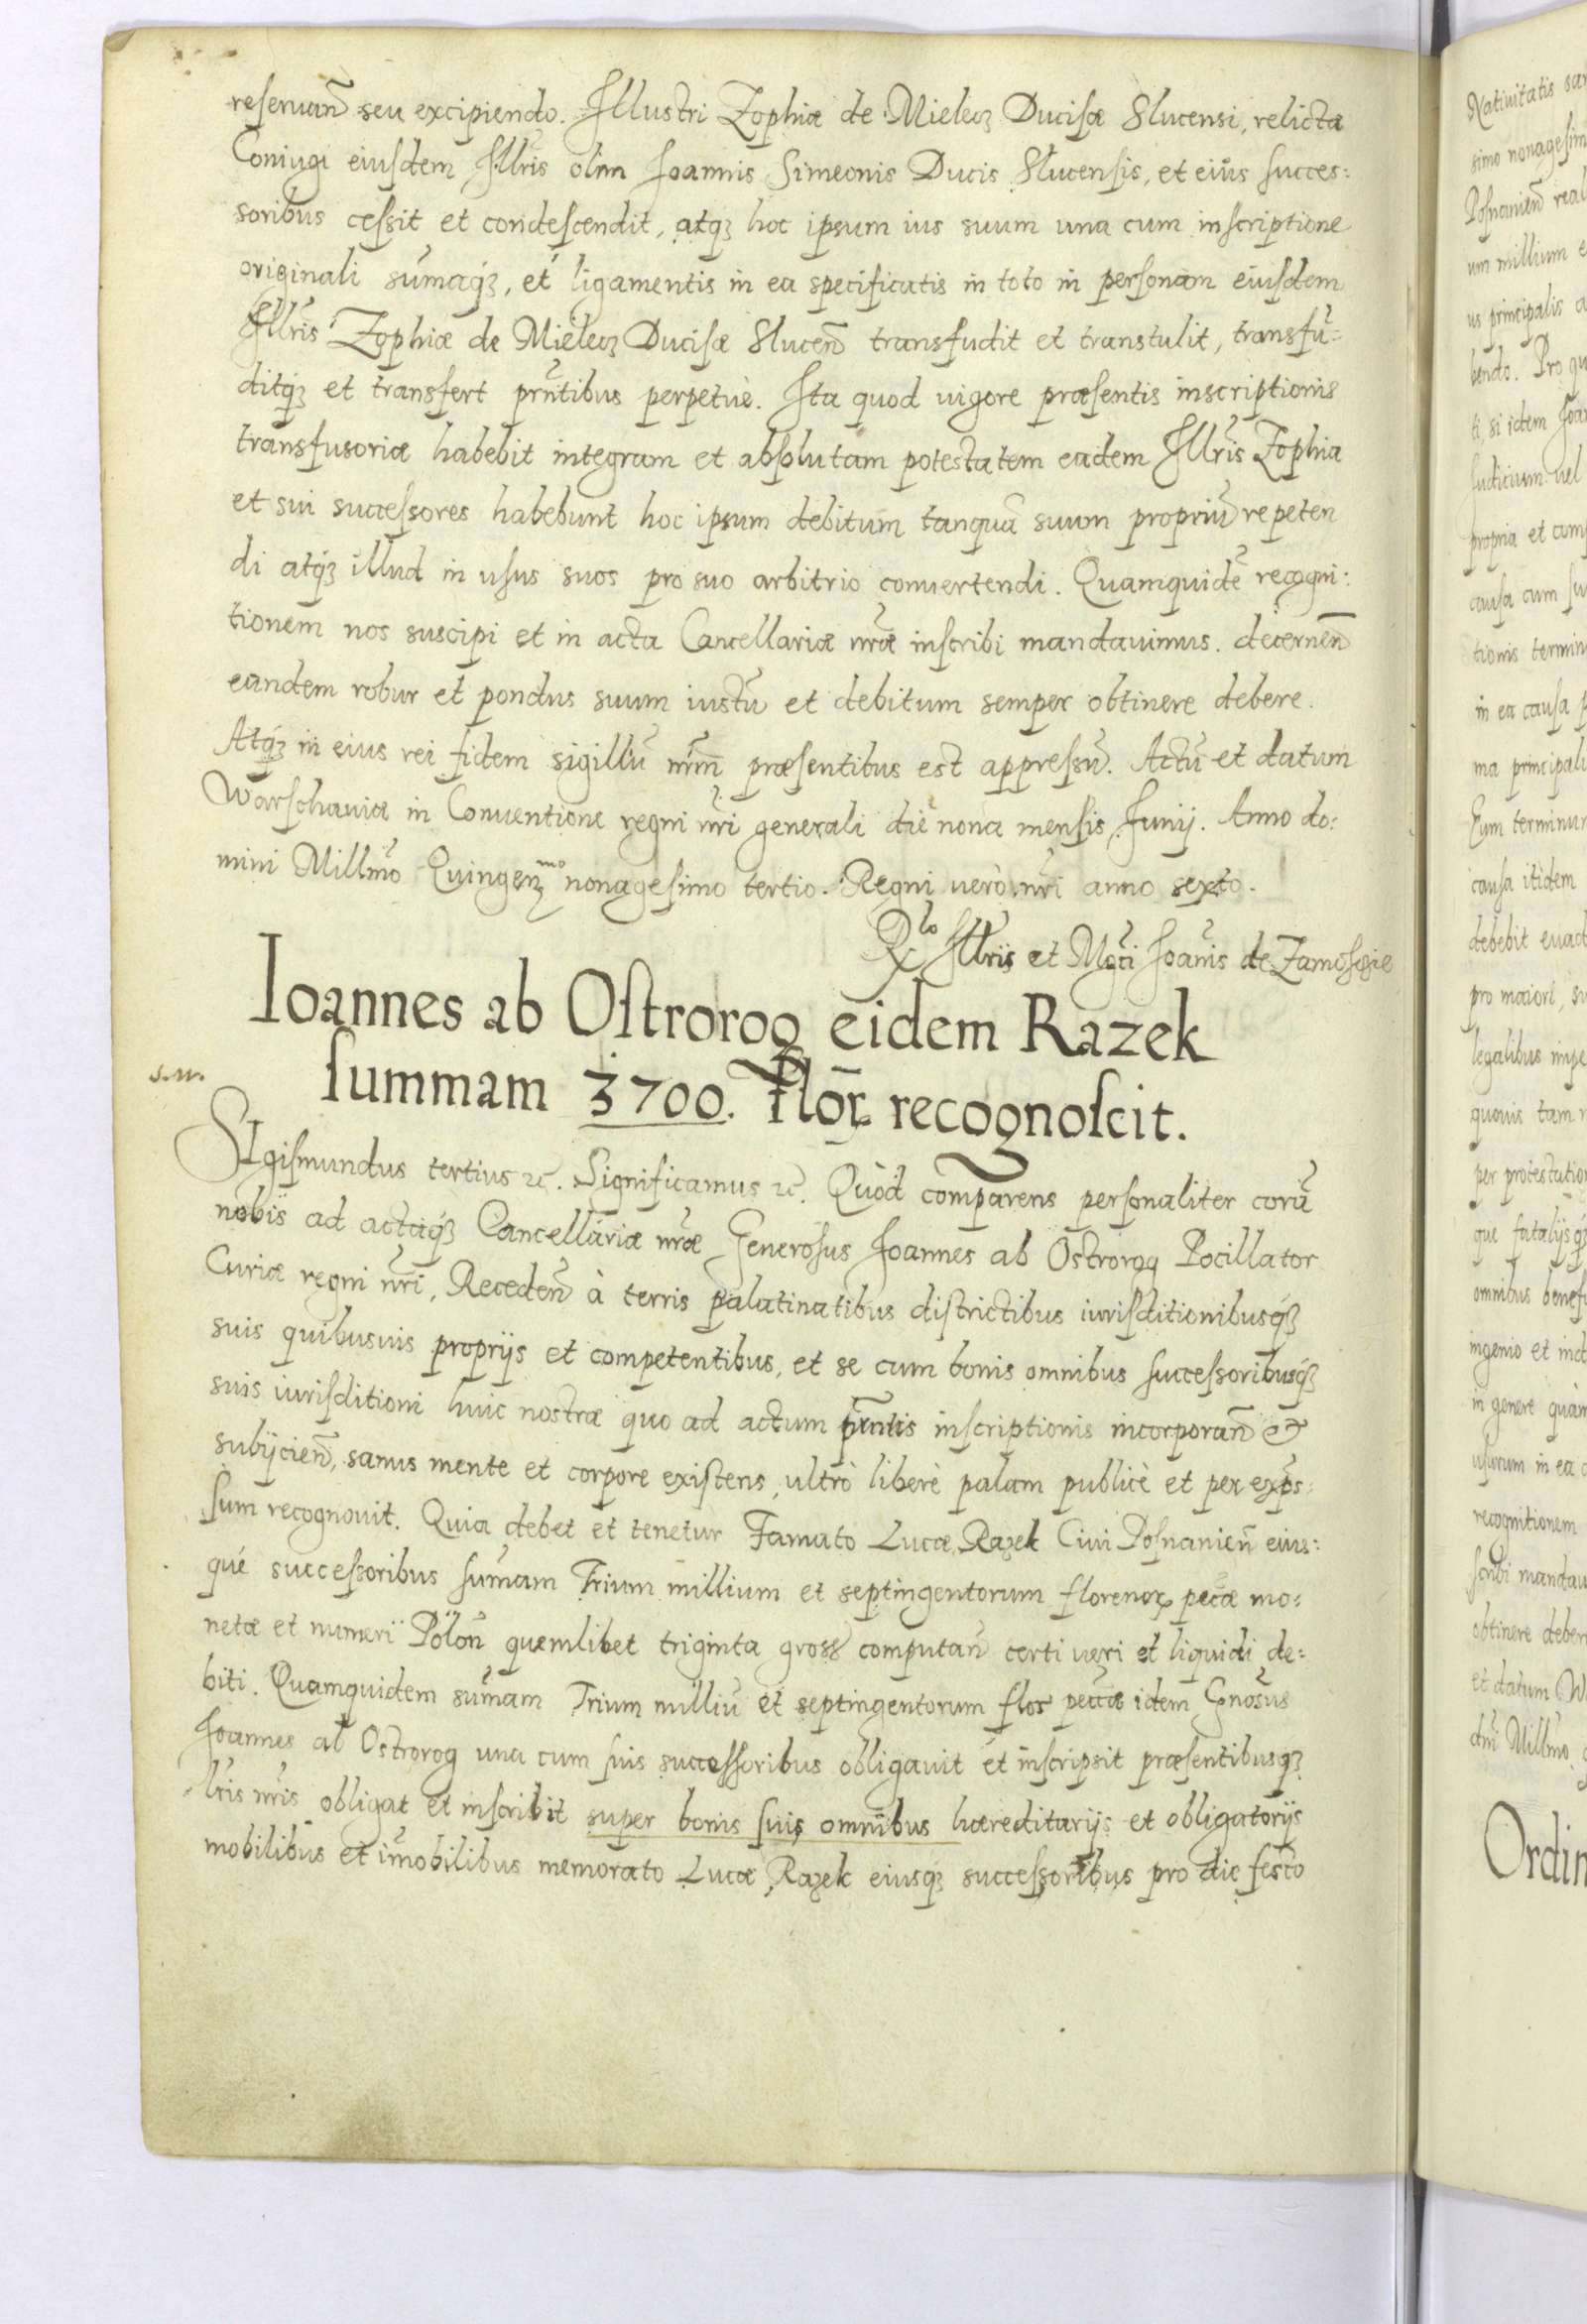 reseruan̄ seu excipiendo. Illustri Zophiæ de Mielecz Ducisæ Slucensi, relicta
Coniugi eiusdem Illris olim Ioannis Simeonis Ducis Slucensis, et eius succes:
soribus cessit et condescendit, atq3 hoc ipsum ius suum una cum inscriptione
originali sum̄aq3, et ligamentis in ea specificatis in toto in personam eiusdem
Illris Zophiæ de Mielecz Ducisæ Slucen̄ transfudit et transtulit, transfū:
ditq3 et transfert prn̄tibus perpetuè. Ita quod uigore præsentis inscriptionis
transfusoriæ habebit integram et absolutam potestatem eadem Illris Zophia
et sui successores habebunt hoc ipsum debitum tanquā suum propriū repeten
di atq3 illud in usus suos pro suo arbitrio conuertendi. Quamquidē recogni:
tionem nos suscipi et in acta Cancellariæ nr̄æ inscribi mandauimus. decernen̄
eandem robur et pondus suum iustū et debitum semper obtinere debere.
Atq3 in eius rei fidem sigillū nr̄m præsentibus est appressū. Actū et datum
Warschauiæ in Conuentione regni nr̄i generali die nona mensis Junij. Anno do:
mini Millmō Quingenmo nonagesimo tertio. Regni uerò nr̄i anno sexto.
Rlo Illris et Mgci Ioānis de Zamoscie
Ioannes ab Ostrorog eidem Razek
summam 3700. Flor̄ recognoscit.
s.m.
SIgismundus tertius etc̄. Significamus etc̄. Quòd comparens personaliter corā
nobis ad actaq3 Cancellariæ nr̄æ Generosus Joannes ab Ostrorog Pocillator
Curiæ regni nr̄i, Receden̄ à terris palatinatibus districtibus iurisditionibusq3
suis quibusuis proprijs et competentibus, et se cum bonis omnibus successoribusq3
suis iurisditioni huic nostræ quo ad actum prn̄tis inscriptionis incorporan̄ et
subijcien̄, sanus mente et corpore existens, ultrò liberè palam publicè et per exp̄s:
sum recognouit. Quia debet et tenetur Famato Lucæ Razek Ciui Posnanien̄ eius:
qué successoribus sum̄am Trium millium et septingentorum florenor pec̄æ mo:
netæ et numeri Polon̄ quemlibet triginta gross computan̄ certi ueri et liquidi de:
biti. Quamquidem sum̄am Trium milliū et septingentorum flor pec̄æ idem Gn̄osus
Joannes ab Ostrorog una cum suis successoribus obligauit et inscripsit præsentibusq3
lr̄is nr̄is obligat et inscribit super bonis suis omnibus hæreditarijs et obligatorijs
mobilibus et im̄obilibus memorato Lucæ Razek eiusq3 successoribus pro die festo
Natiuitatis
simo nonagesim
Posnanien̄ real
um millium e
us principalis a
bendo. Pro qu
ti, si idem Joan
Iudicium uel
propria et com
causa cum su
tionis termin
in ea causa p
ma principali
Eum terminum
causa itidem
debebit euad
pro maiori, su
legalibus impe
quouis tam
per protestation
que fatalijsq3
omnibus benefi
ingenio et ind
in genere quàm
usurum in ea
recognitionem
scribi mandau
obtinere deber
et datum W
dn̄i Millmō
Ordin